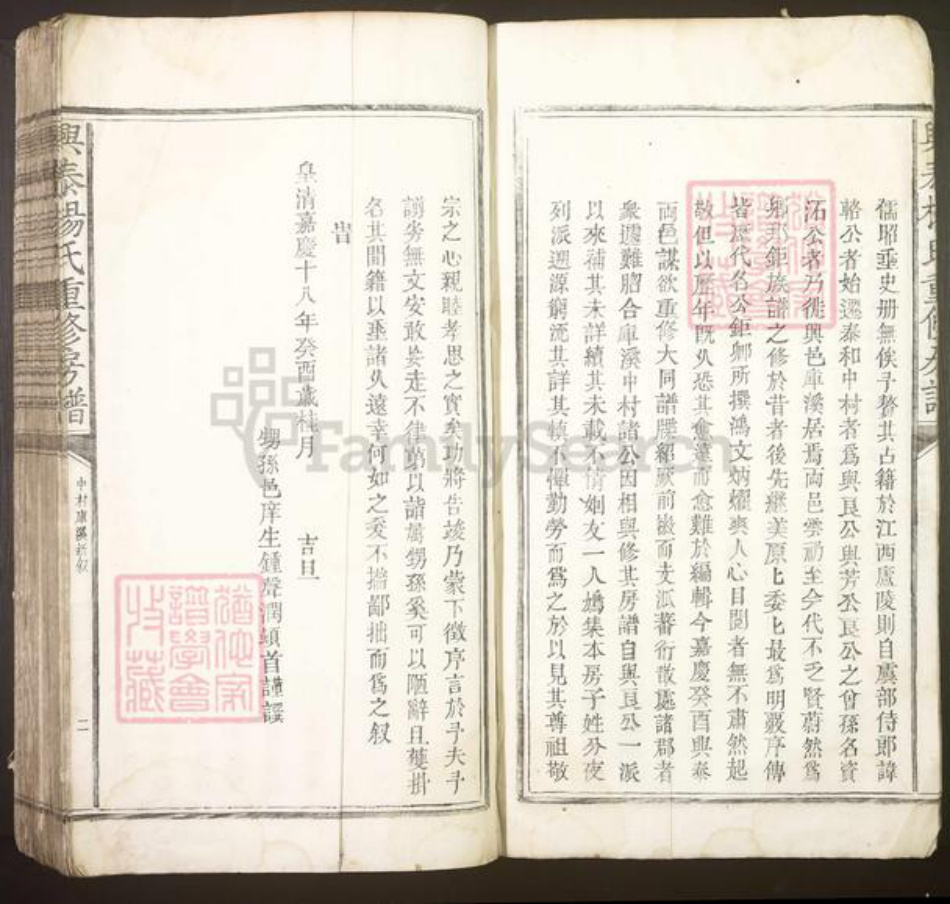 儒昭垂史册無俟予贅其占籍於江西廬陵則自虞部侍郎諱
輅公者始遷泰和中村者爲與良公與芳公良公之曾孫名資
沰公者乃徙興邑庫溪居焉兩邑雲礽至今代不乏賢蔚然爲
鄉邦鉅族譜之修於昔者後先繼美原比委比最爲明覈序傳
皆歷代名公鉅卿所撰鴻文炳燿爽人心目閱者無不肅然起
敬但以歷年旣久恐其愈遠而愈難於編輯今嘉慶癸酉興泰
両邑謀欲重修大同譜牒紹厥前徽而支派蕃衍散處諸郡者
衆遽難脗合庫溪中村諸公因相與修其房譜自與良公一派
以來補其未詳續其未載不惜姻友一人鳩集本房子姓分夜
列派遡源窮流其詳其慎不憚勤勞而爲之於以見其尊祖敬
宗之心親睦孝思之實矣功將告竣乃蒙下徵序言於予夫予
謭劣無文安敢妄走不律第以諧屬甥孫奚可以陋辭且獲掛
名其間籍以垂諸久遠幸何如之爰不揣鄙拙而爲之叙
旹
皇清嘉慶十八年癸酉歲桂月 吉旦
甥孫邑庠生鍾聲潤頓首謹譔
興泰楊氏重修房譜
中村庫溪新叙
二
猶他家
譜學會
收藏
FamilySearch